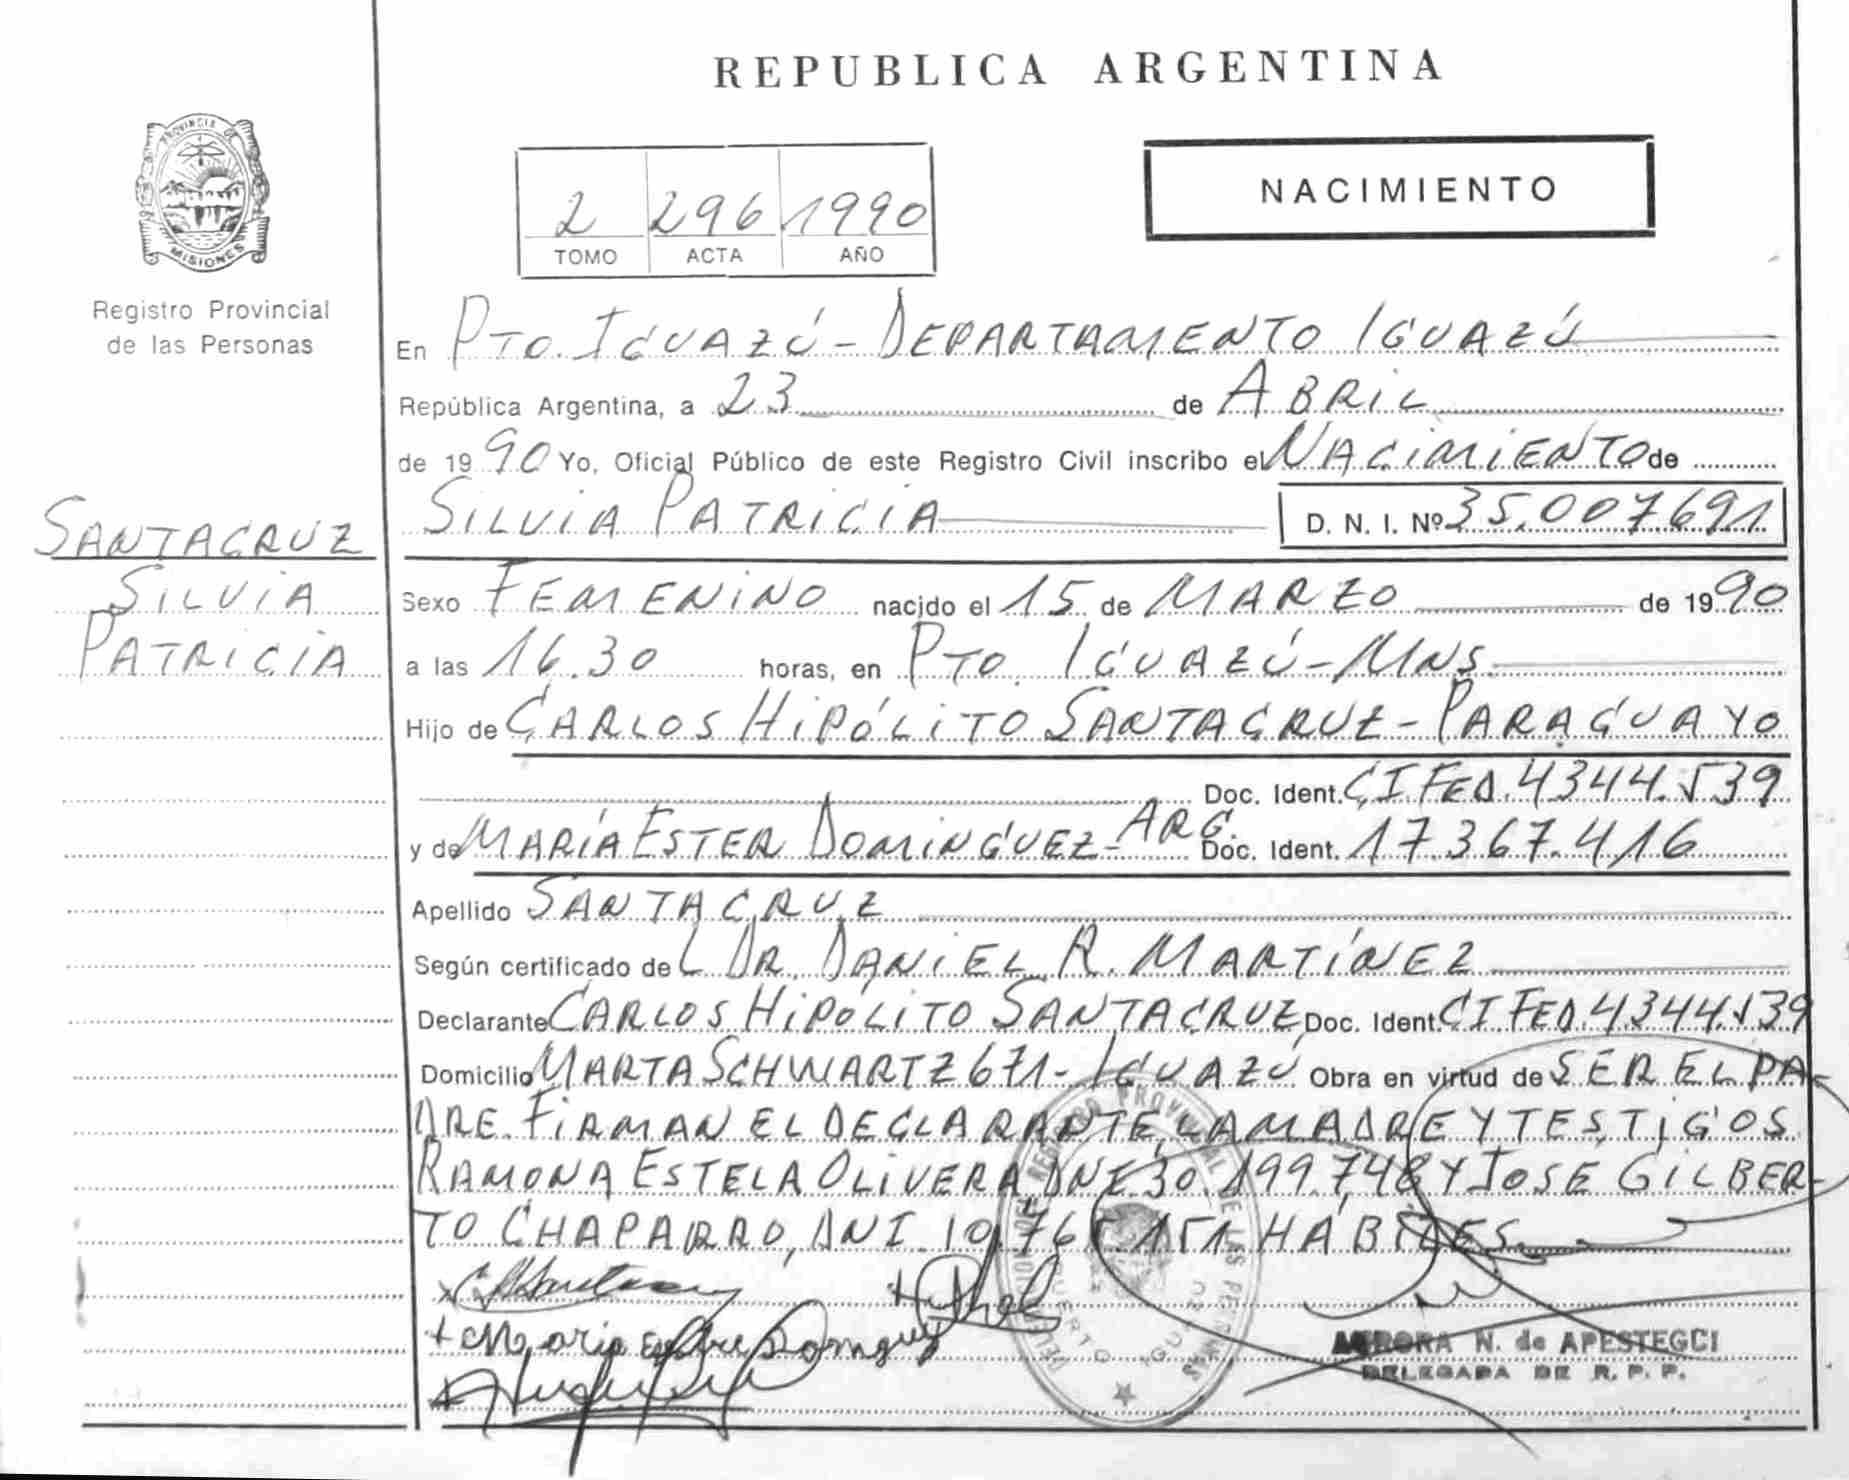 REPUBLICA ARGENTINA
PROVINCIA DE
MISIONES
Registro Provincial
de las Personas
2 296 1990
TOMO ACTA AÑO
NACIMIENTO
En PTO. IGUAZÚ - DEPARTAMENTO IGUAZÚ
República Argentina, a 23 de ABRIL
de 1990 Yo, Oficial Público de este Registro Civil inscribo el NACIMIENTO de
SILVIA PATRICIA D. N. I. Nº 35.007691
SANTACRUZ
SILVIA
PATRICIA
Sexo FEMENINO nacido el 15 de MARZO de 1990
a las 16.30 horas, en PTO. IGUAZÚ - MNS.
Hijo de CARLOS HIPÓLITO SANTACRUZ - PARAGUAYO
Doc. Ident. CI FED. 4344.539
y de MARÍA ESTER DOMINGUEZ - ARG. Doc. Ident. 17.367.416
Apellido SANTACRUZ
Según certificado de L DR. DANIEL R. MARTÍNEZ
Declarante CARLOS HIPÓLITO SANTACRUZ Doc. Ident. CI FED. 4344.539
Domicilio MARTA SCHWARTZ 671 - IGUAZÚ Obra en virtud de SER EL PA-
DRE. FIRMAN EL DECLARANTE, LA MADRE Y TESTIGOS
RAMONA ESTELA OLIVERA, DNI 30.199.748 Y JOSÉ GILBER-
TO CHAPARRO, DNI 10.765.151 HÁBILES.
AURORA N. de APESTEGUI
DELEGADA DE R. P. P.